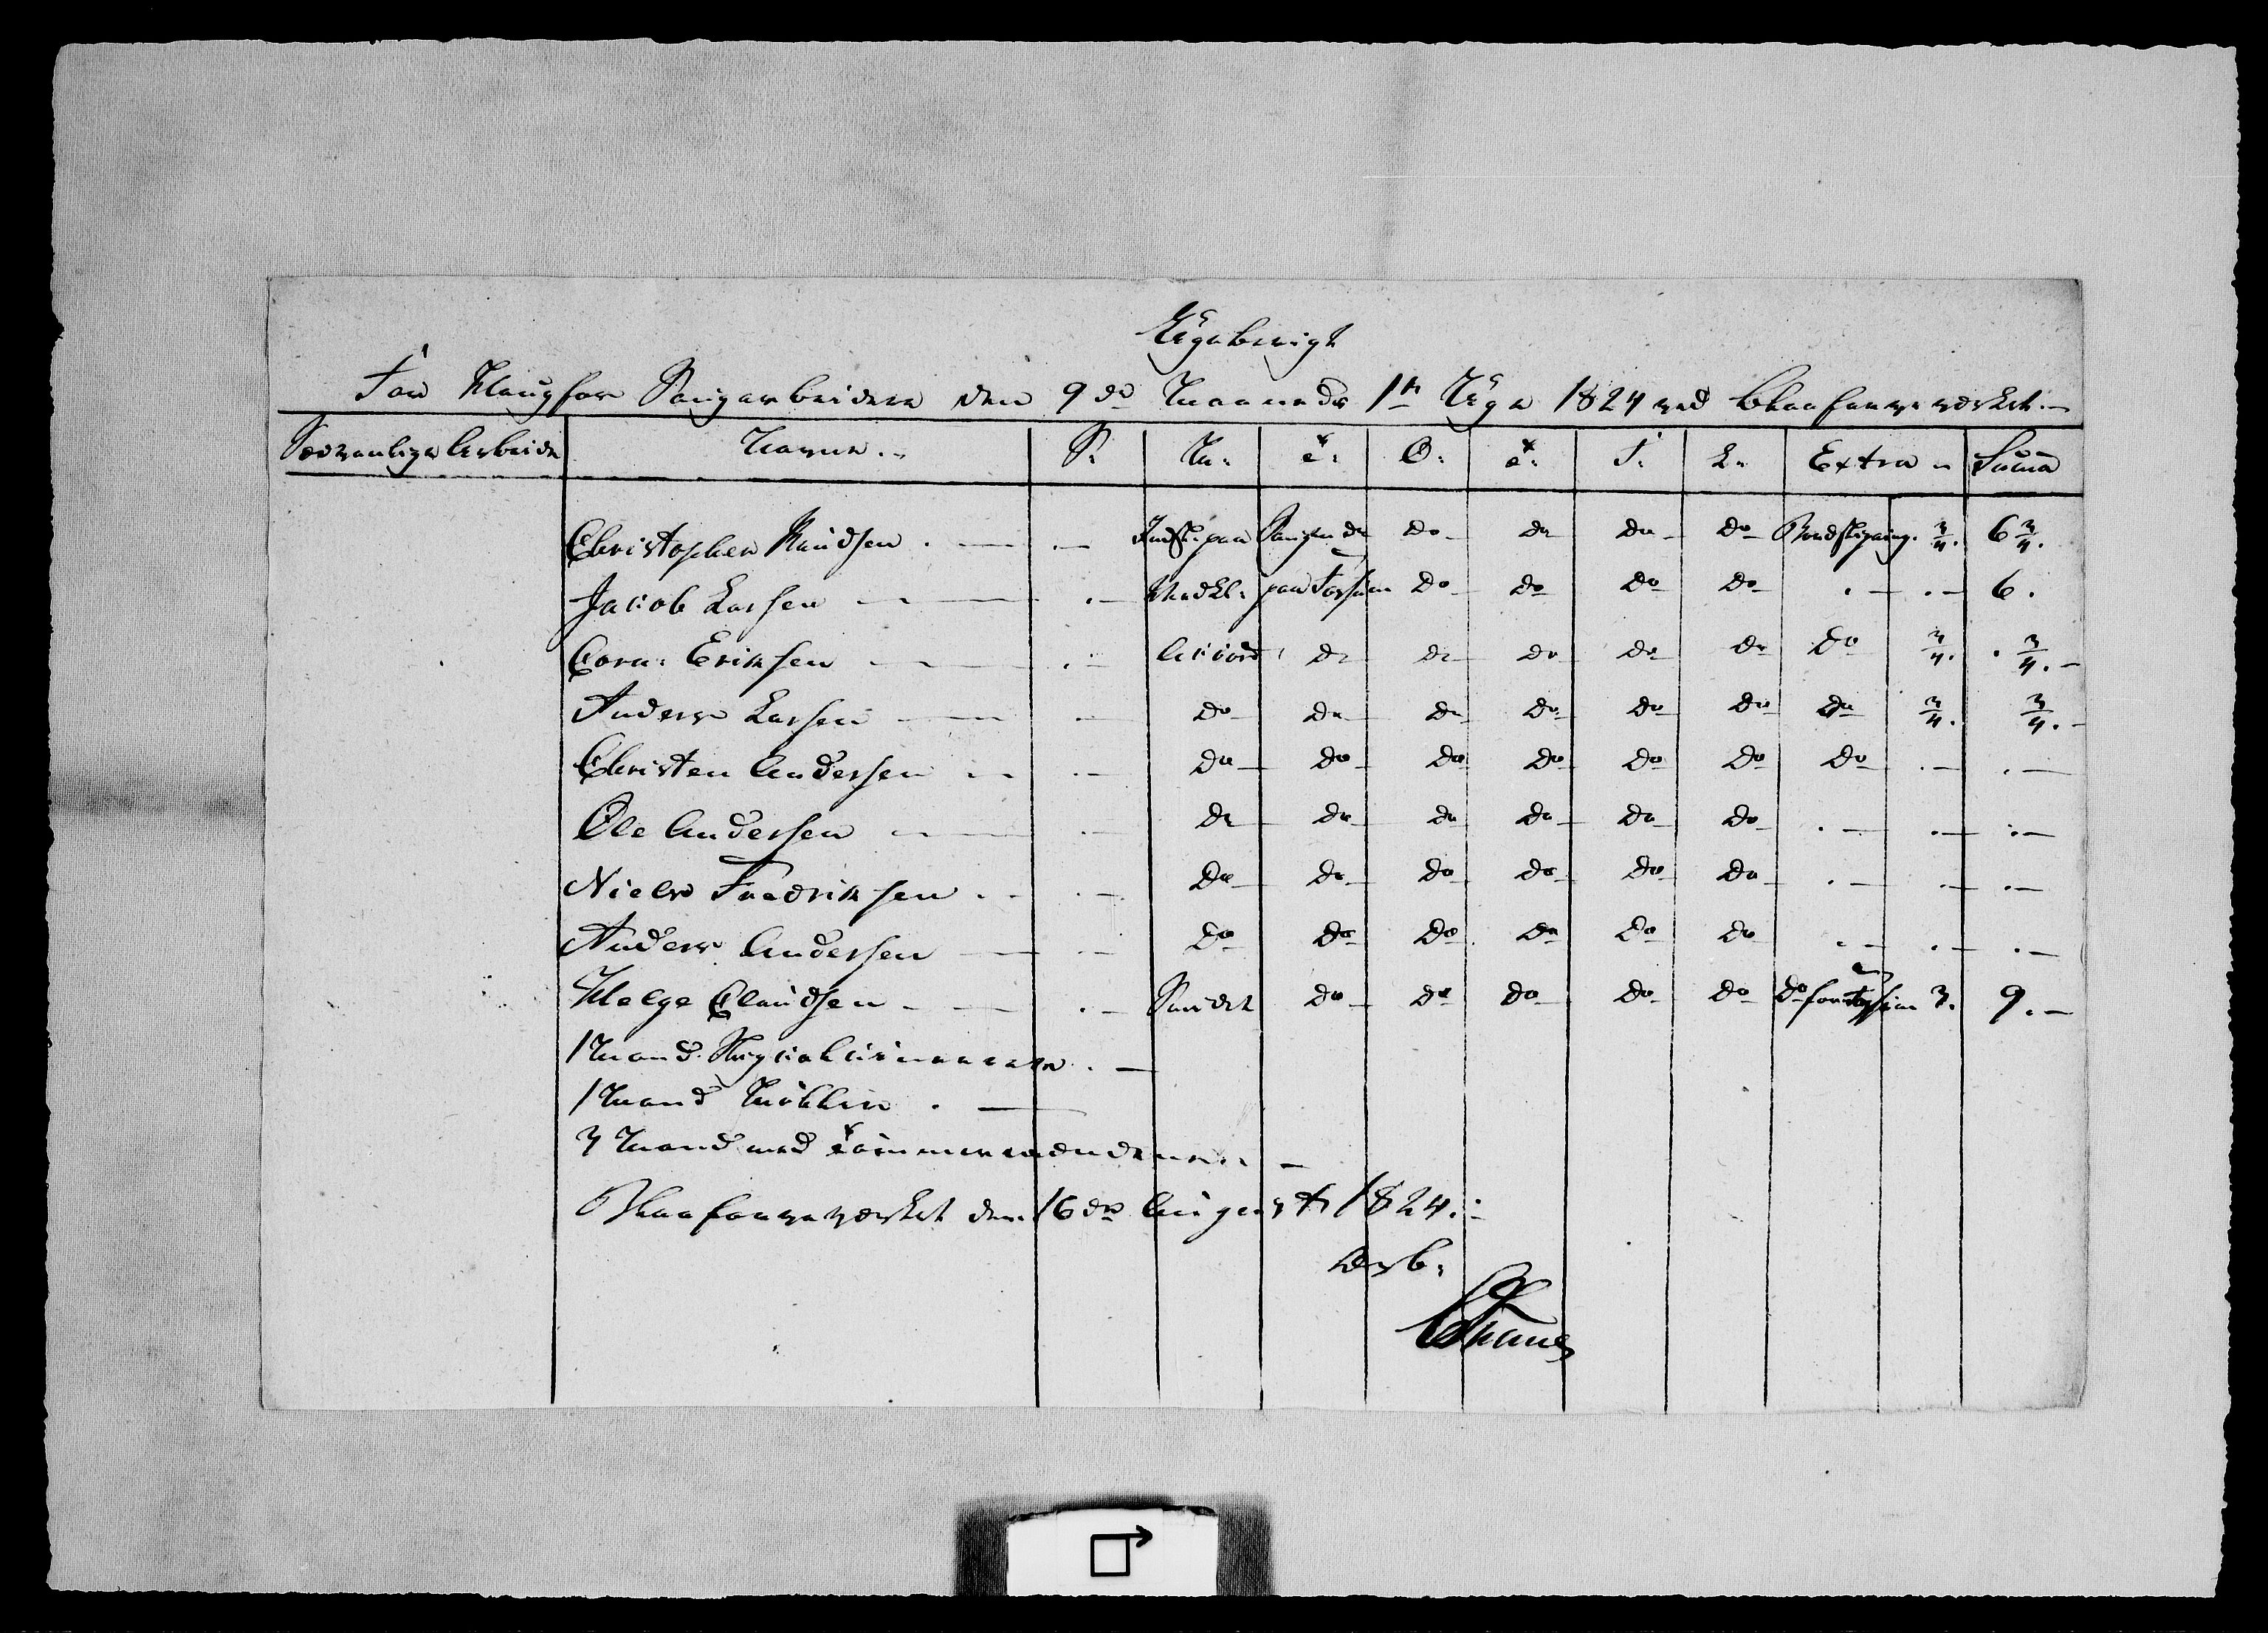 Ugeberigt
For Haugfos Saugarbeidere den 9de Maaneds 1te Uge 1824 ved Blaafarveværket.
Sædvanlige Arbeide Navne. S: M: T: O: T: F: L: Extra Summa
Christopher Knudsen Saugen do do do do do 3/4. 6 3/4.
Jacob Larsen paa do do do do 6.
Corn: Eriksen Accord do do do do do do 3/4. 3/4.
Anders Larsen do do do do do do do 3/4. 3/4.
Christen Andersen do do do do do do do
Ole Andersen do do do do do do
Niels Fredriksen do do do do do do
Anders Andersen do do do do do do
Helge Claudsen do do do do do do 3. 9.
1 Mand
1 Mand
3 Mand med
Blaafarveværket den 16de August 1824.